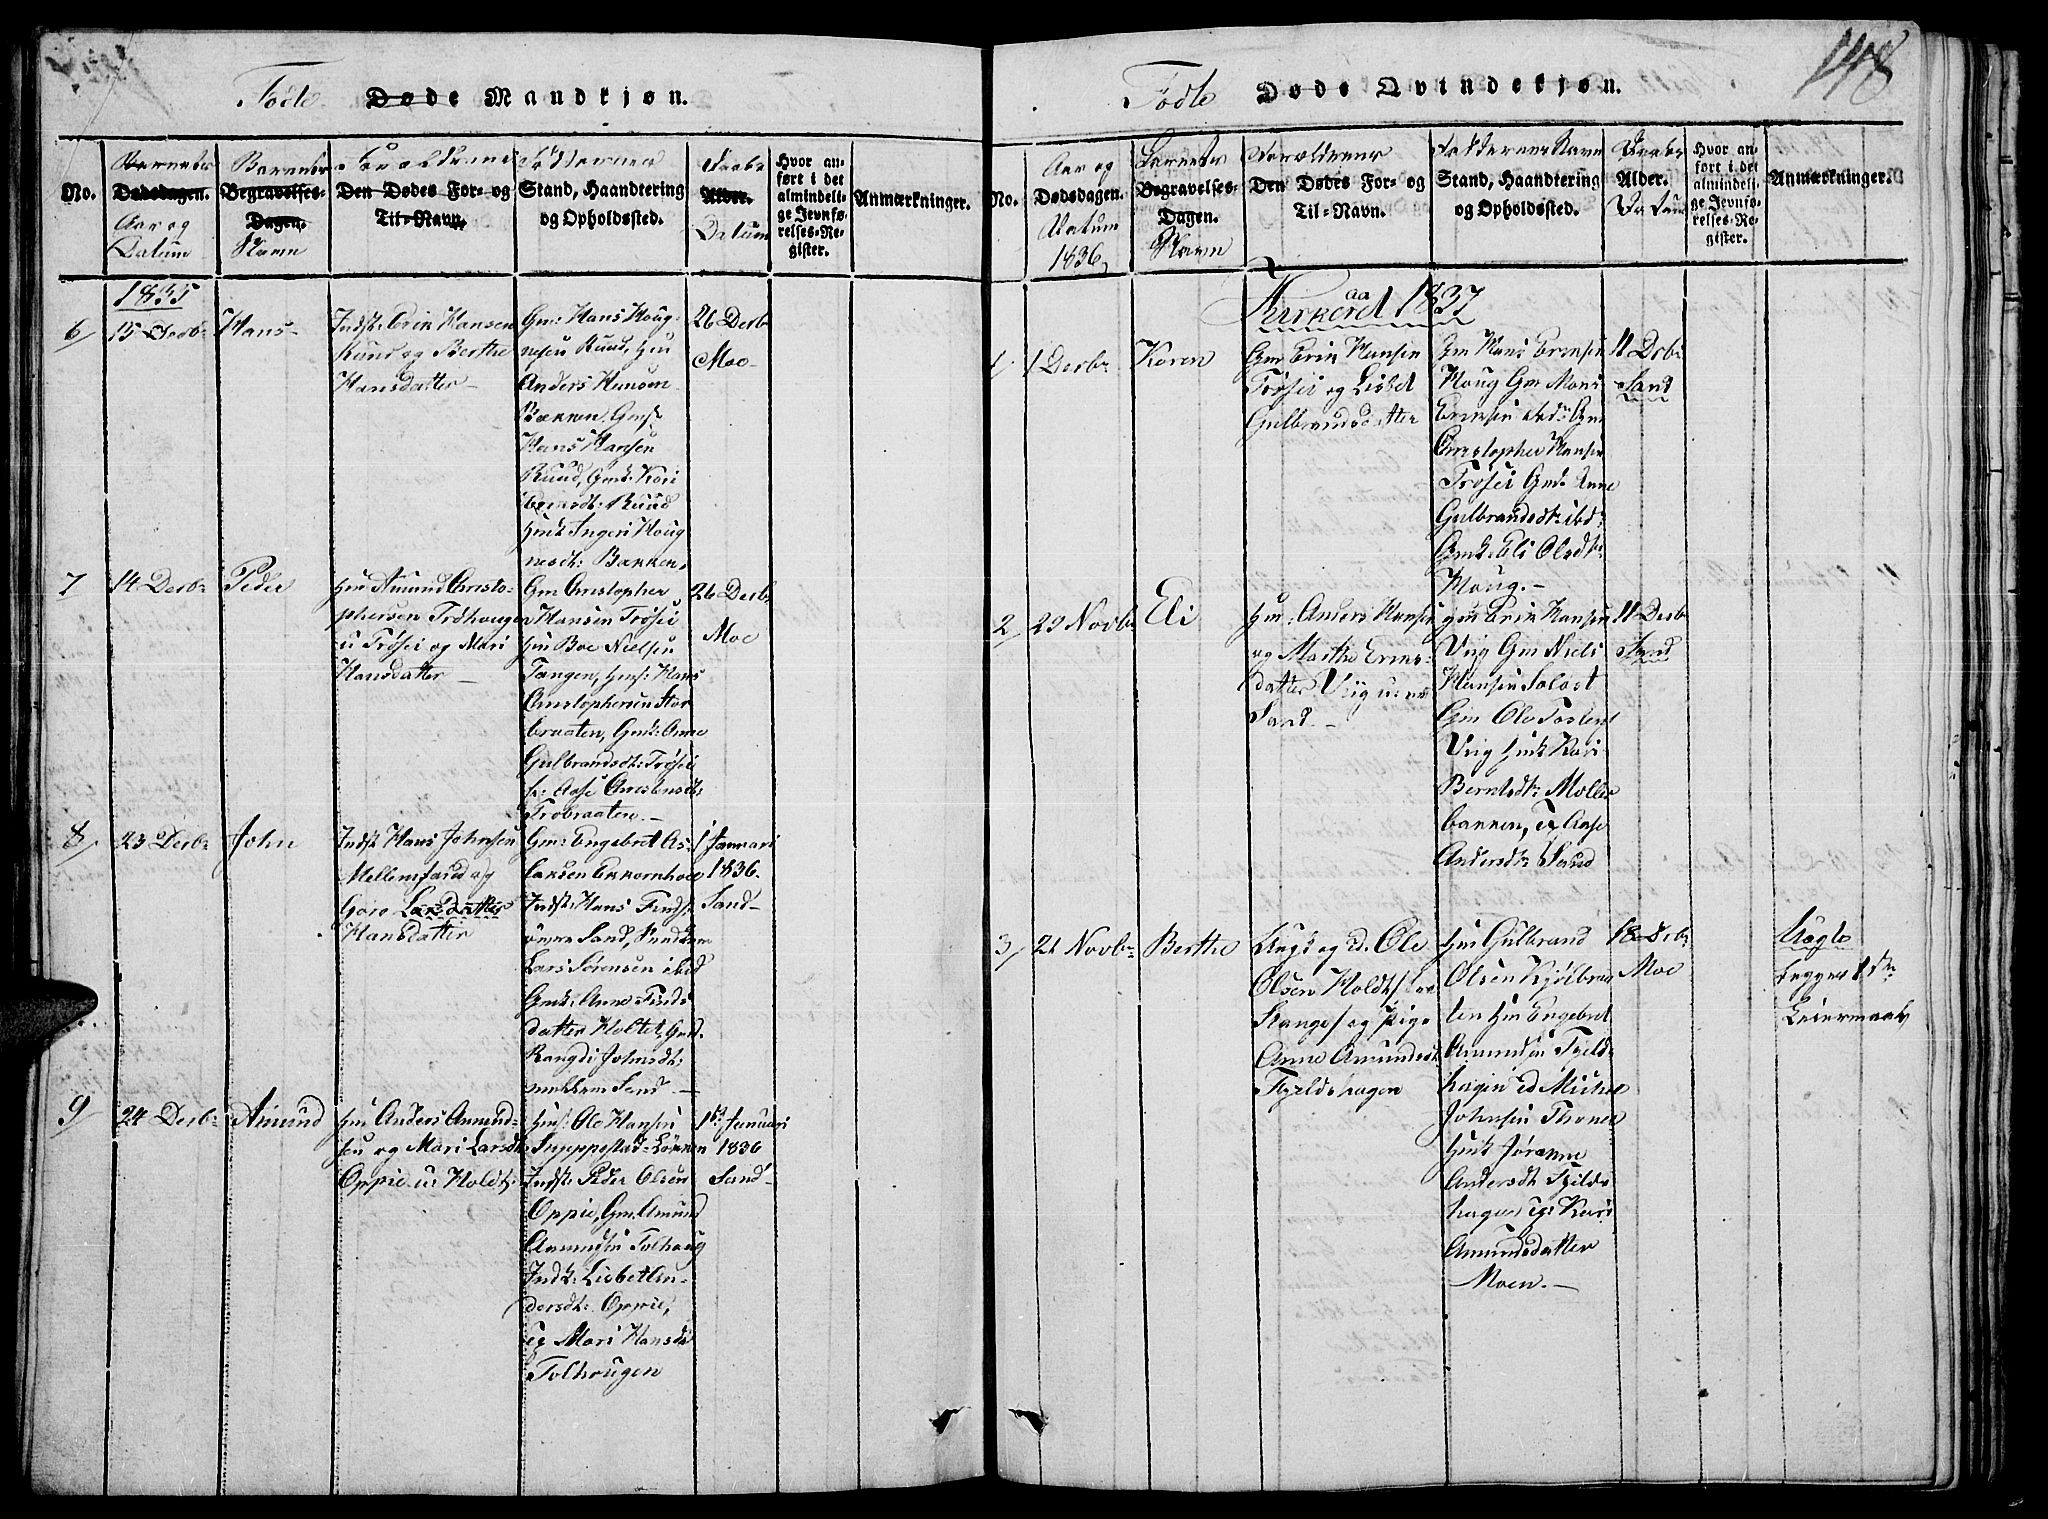 Fødte Døde Mandkjøn.
No.
Barnets
Dødsdagen.
Aar og
Datum
Barnets
Begravelses-
Dagen.
Navn
Forældrene
Den Dødes For- og
Til-Navn.
Faddernes
Stand, Haandtering
og Opholdssted.
Daabs
Alder.
Datum
Hvor an-
ført i det
almindeli-
ge Jevnfø-
relses-Re-
gister.
Anmærkninger.
1835
6/
15 Decbr
Hans
Indst: Erik Hansen
Ruud og Berthe
Hansdatter
Gm: Hans Houg-
nesen Ruud, Hm
Anders Hansen
Bakken, Gms:
Hans Hansen
Ruud, Gmk: Kari
Eriksdt: Ruud
Hmk Ingeri Houg
nesdt: Bakken.
26 Decbr
Moe
7
14 Decbr
Peder
Hm Amund Christo-
phersen Tröhaugen
u Trøsei og Mari
Hansdatter
Gm Christopher
Hansen Trøsei
Hm Boe Nielsen
Tangen, Hms: Hans
Christophersen Stor
braaten, Gmk: Anne
Gulbrandsdt: Trøsei
P: Aase Christensdt:
Trobraaten.
26 Decbr
Moe
8/
23 Decbr
John
Indst Hans Johnsen
Mellemsand og
Goro Larsdatter
Hansdatter
Gm: Engebret As-
laksen Ekornhoel
Indst: Hans Finds:
övre Sand, Undkm
Lars Sørensen ibid
Gmk: Anne Finds
datter Holtet, Gmk.
Rangdi Johnsdt:
mellem Sand
1 Januari
1836.
Sand
9/
24 Decbr
Amund
Hm Anders Amund-
sen og Mari Larsdt:
Oppie u: Holdt:
Hms: Ole Hansen
Sneppestad-Løkken
Indst: Peder Olsen
Oppie, Gm. Amund
Amundsen Tolhaug
Indk: Lisbet An-
dersdt: Oppie,
og Mari Hansdt
Tolhougen
1st Januari
1836
Sand
148
Fødte Døde Qvindekjøn.
No.
Aar og
Dødsdagen.
Datum
1836
Barnets
Begravelses-
Dagen.
Navn
Forældrenes
Den Dødes For- og
Til-Navn.
Faddernes Navn
Stand, Haandtering
og Opholdssted.
Daabs
Alder.
Datum
Hvor an-
ført i det
almindeli-
ge Jevnfø-
relses-Re-
gister.
Anmærkninger.
Kirkeaaret 1837
1
1 Decbr
Karen
Gm Erik Hansen
Trøsei og Lisbet
Gulbrandsdatter
Gm Hans Eriksen
Houg Gm Mons
Eriksen ibd: Gm
Christopher Hansen
Trøsei Gmk: Anne
Gulbrandsdt: ibd:
Gmk: Eli Olsdt:
Houg.
11 Decbr
Sand
2/
29 Novbr
Eli
Hm: Anders Hansen
og Marthe Eriks-
datter Viig
Sand.
Gm Erik Hansen
Viig Gm Niels
Hansen
Gm Ole Torstens
Viig Hmk Kari
Berntsdt: Møller
bakken, og Aase
Andersdt: Sand
11 Decbr
Sand
3/
21 Novbr
Berthe
Ole
Olsen Holdt
Stange/ og Pige
Anne Amundsdt
Kjeldshagen
Hm Gulbrand
Olsen Kjölbraa
ten Hm Engebret
Amundsen Kjeld-
hagen Michel
Johnsen Thone
Hmk Jøranne
Andersdt Kjelds
hagen og Kari
Amundsdatter
Moen.
18 Decbr
Moe
Uægte
begges 1ste
Leiermaal